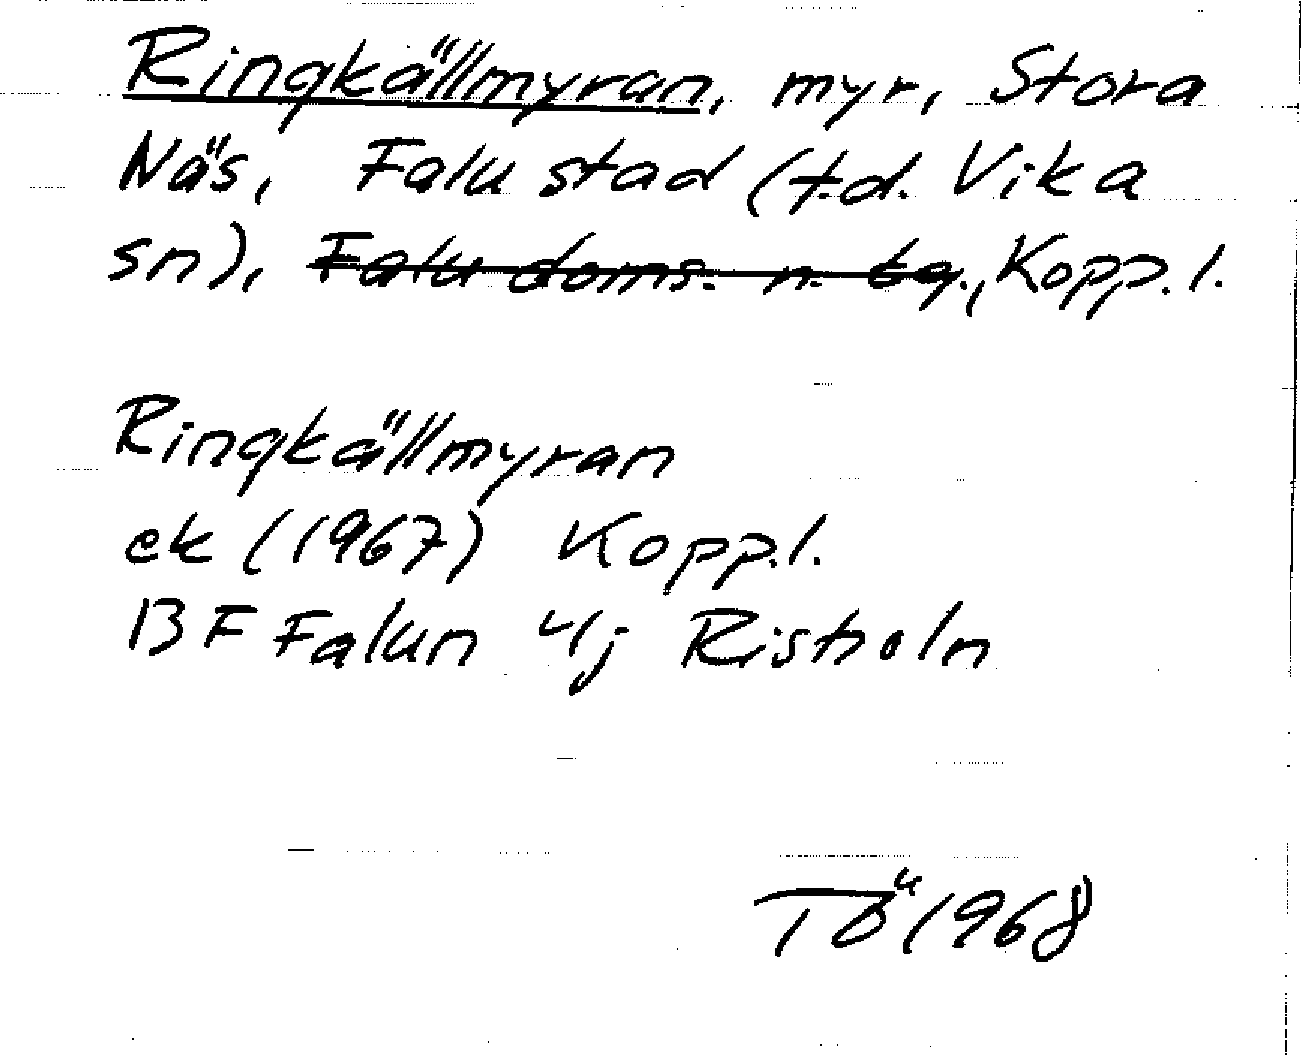 Ringkällmyran, myr, Stora
Näs, Falu stad (f.d. Vika
sn), Falu doms. n. tg., Kopp. l.
Ringkällmyran
ek (1967) Kopp. l.
13 F Falun 4j Ristholn
TÖ 1968